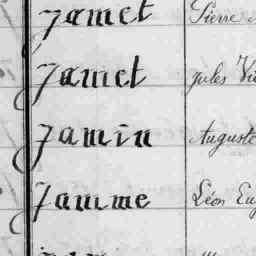 Jamet Pierre
Jamet Jules
Jamin Auguste
Jamme Léon Eug